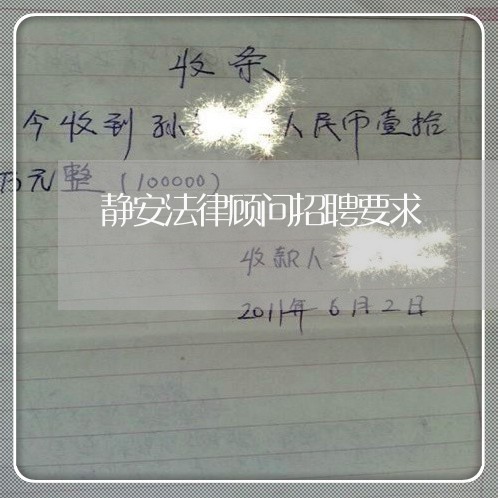 收条
今收到孙 人民币壹拾
万元整（100000）
静安法律顾问招聘要求
收款人
2011年6月2日